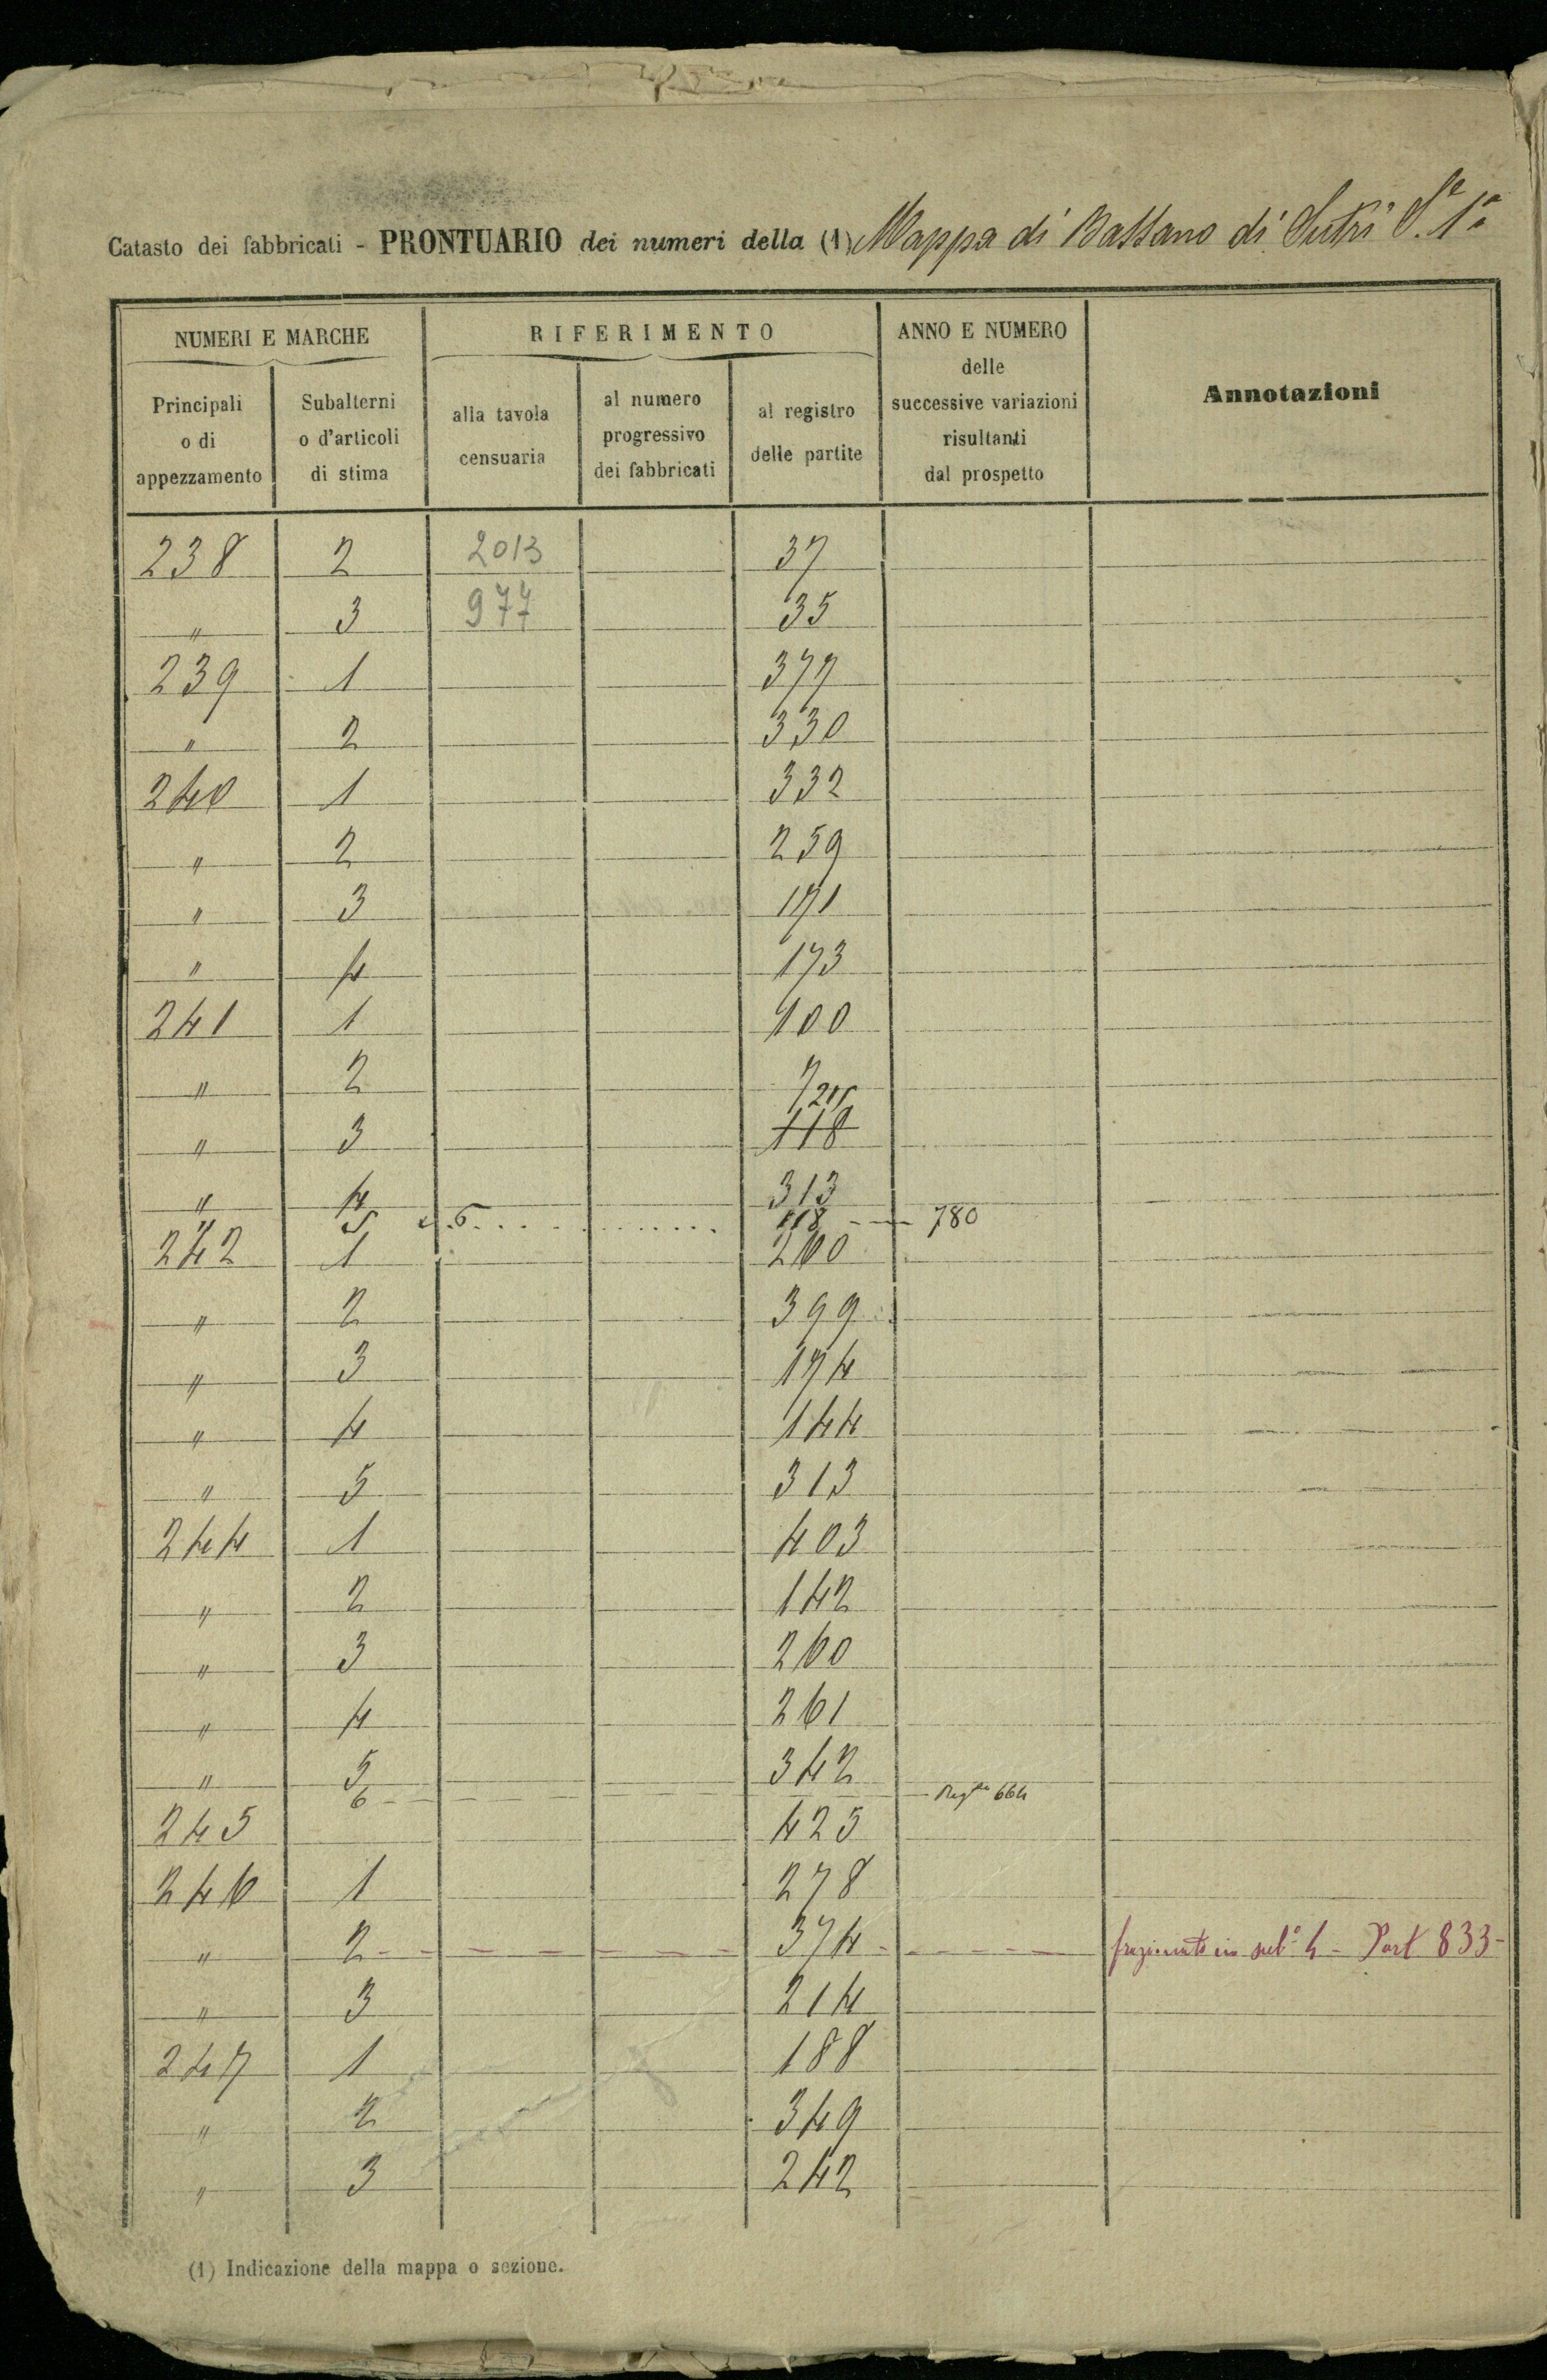 Catasto dei fabbricati - PRONTUARIO dei numeri della (1) Mappa di Bassano di Sutri S.e 1a
NUMERI E MARCHE
RIFERIMENTO
ANNO E NUMERO delle successive variazioni risultanti dal prospetto
Annotazioni
Principali o di appezzamento
Subalterni o d'articoli di stima
alla tavola censuaria
al numero progressivo dei fabbricati
al registro delle partite
238 2 2013 37
" 3 977 35
239 1 377
" 2 330
240 1 332
" 2 259
" 3 171
" 4 173
241 1 100
" 2 7
" 3 118
" 4 313
" 5 6 118 780
242 1 260
" 2 399
" 3 174
" 4 144
" 5 313
244 1 403
" 2 142
" 3 260
" 4 261
" 5 342
6 664
245 425
246 1 278
" 2 374 frazionato in sub.o 4 - Part 833 -
" 3 214
247 1 188
" 2 349
" 3 242
(1) Indicazione della mappa o sezione.